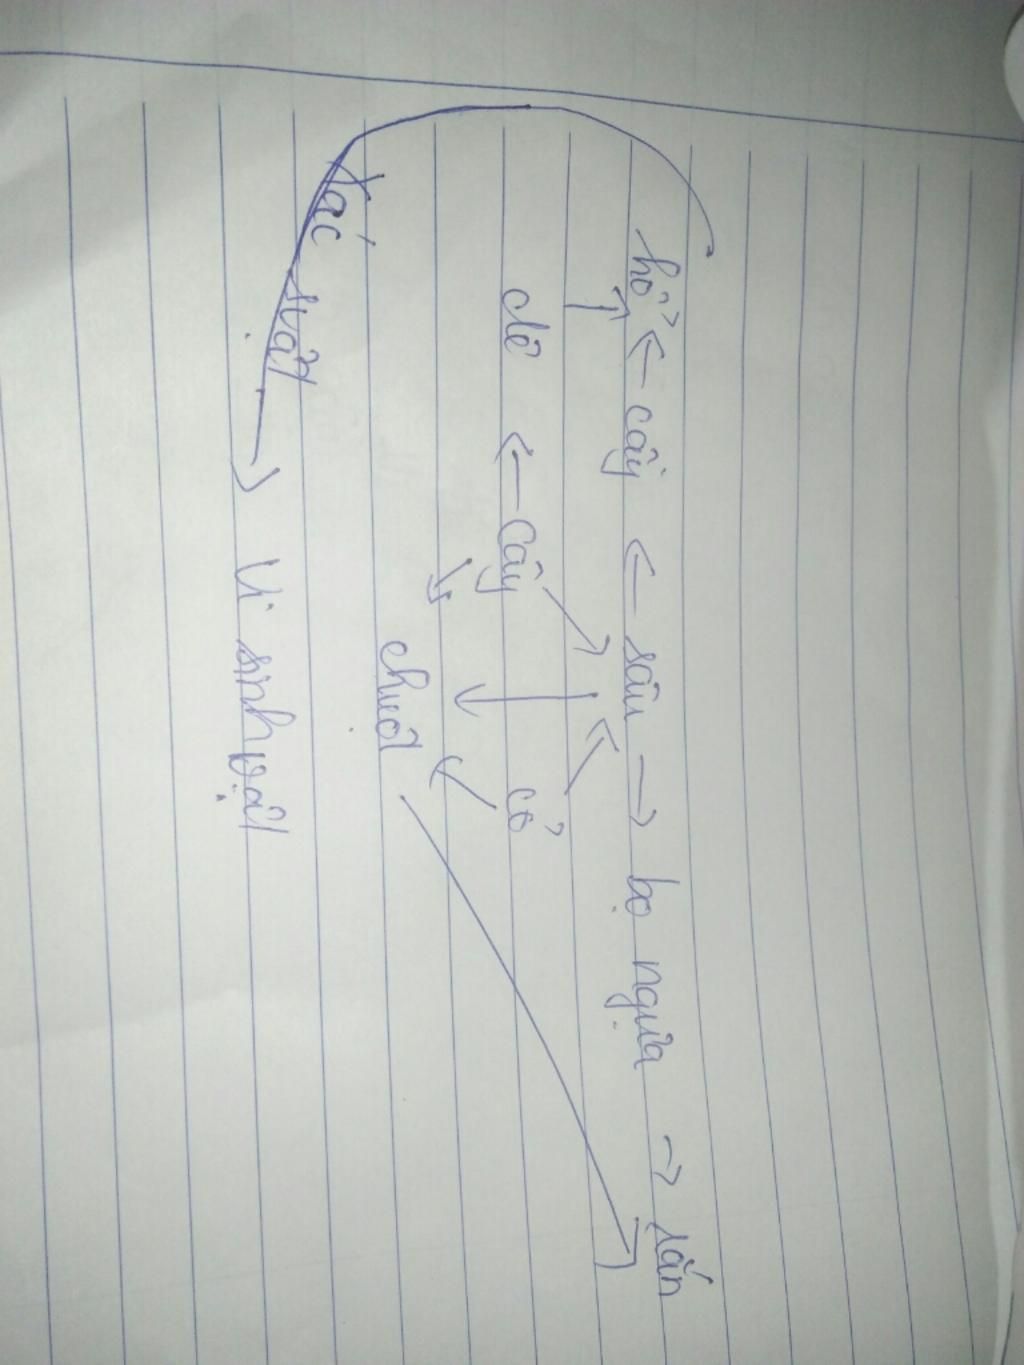 hổ ← cầy ← sâu → bọ ngựa → rắn
dê ← cây cỏ
chuột
xác suất → Vi sinh vật